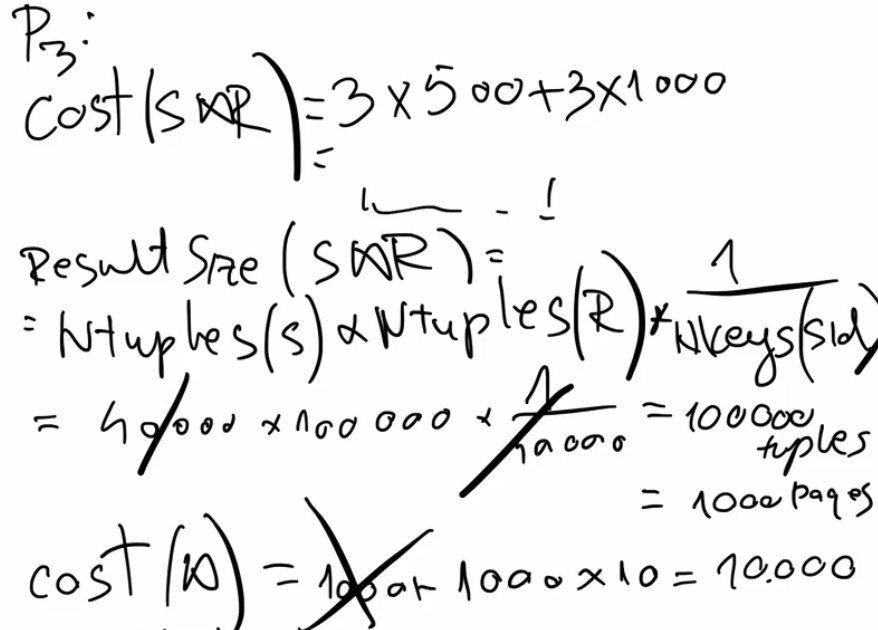 P3:
Cost(S⋈R) = 3 × 500 + 3 × 1000
=
Result Size (S⋈R) =
= Ntuples(S) × Ntuples(R) * 1/Nkeys(Sid)
= 40000 × 100 000 × 1/40000 = 100000 tuples
= 1000 Pages
cost(⋈) = 1000 + 1000 × 10 = 10.000